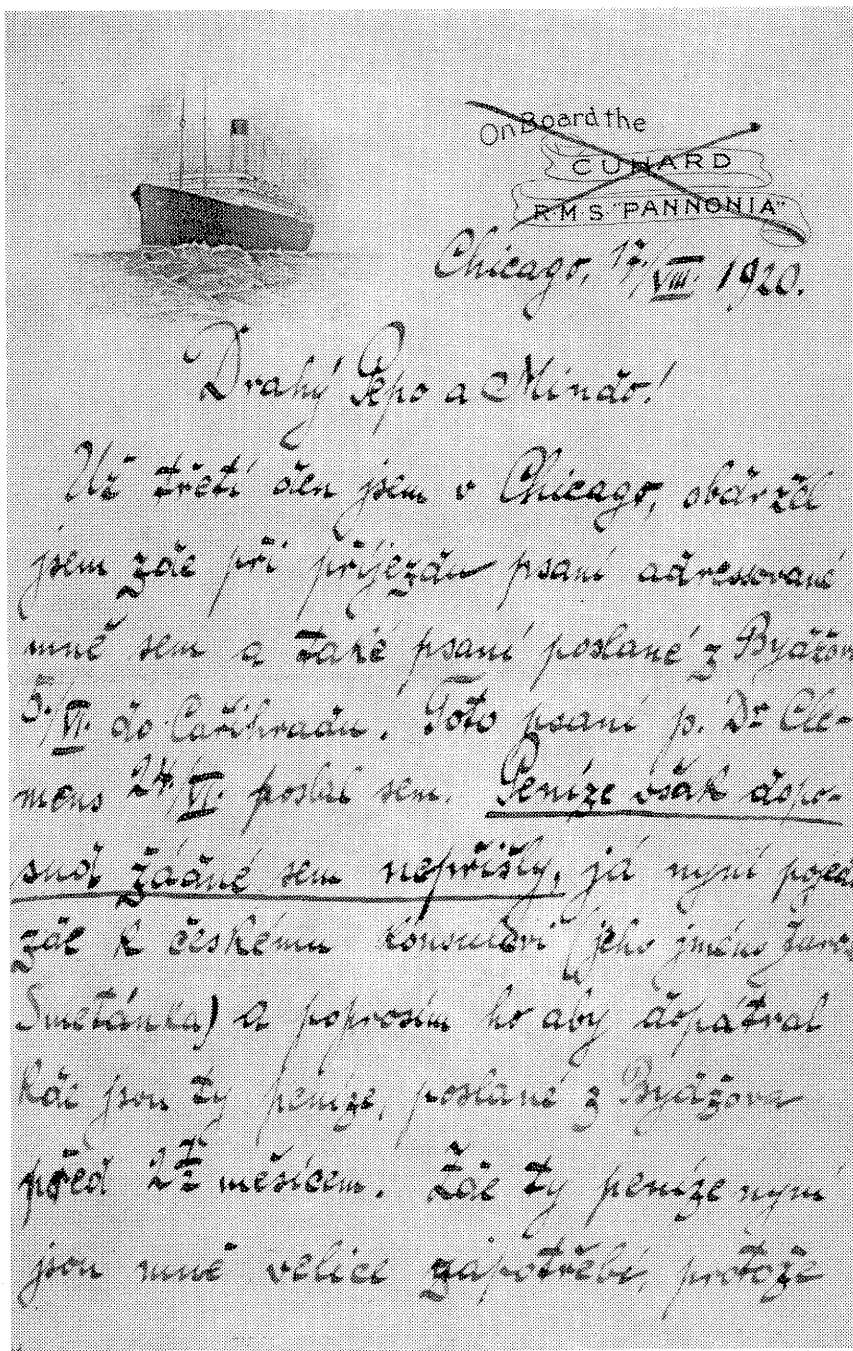 On Board the
CUNARD
R.M.S "PANNONIA"
Chicago, 17./VIII. 1920.
Drahý Pepo a Mindo!
Už třetí den jsem v Chicago, obdržel
jsem zde při příjezdu psaní adressované
mně sem a také psaní poslané z Bydžov
5./VI. do Cařihradu. Toto psaní p. Dr Cle-
mens 24./VI. poslal sem. Peníze však dopo-
sud žádné sem nepřišly, já nyní pojed
zde k českému konsulovi (jeho jméno Jaro
Smetánka) a poprosím ho aby dopátral
kde jsou ty peníze, poslané z Bydžova
před 2½ měsícem. Zde ty peníze nyní
jsou mně velice zapotřebí, protože